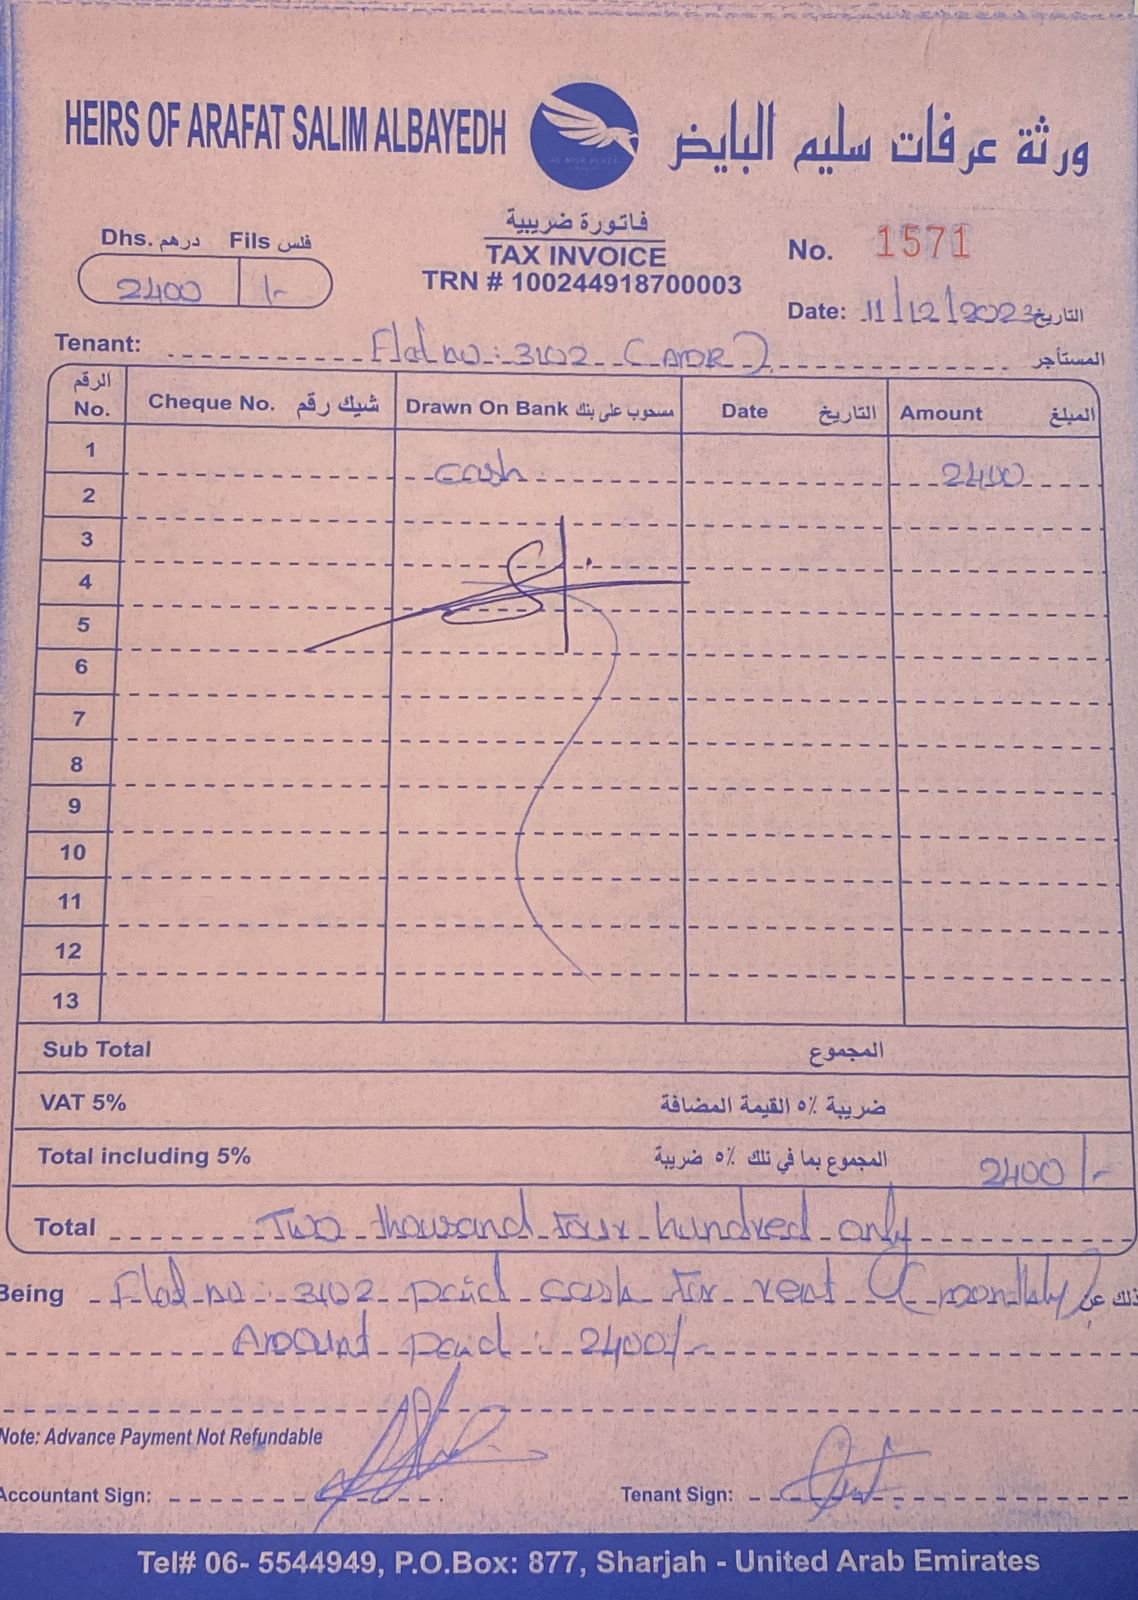 HEIRS OF ARAFAT SALIM ALBAYEDH
AL NISR PLAZA
ورثة عرفات سليم البايض
فاتورة ضريبية
TAX INVOICE
TRN # 100244918700003
Dhs. درهم Fils فلس
2400 /-
No. 1571
Date: 11/12/2023 التاريخ
Tenant: Flat no: 3102 (ADR) المستأجر
الرقم No. Cheque No. شيك رقم Drawn On Bank مسحوب على بنك Date التاريخ Amount المبلغ
1 cash 2400
2
3
4
5
6
7
8
9
10
11
12
13
Sub Total المجموع
VAT 5% ضريبة ٥٪ القيمة المضافة
Total including 5% المجموع بما في تلك ٥٪ ضريبة 2400/-
Total Two thousand four hundred only
Being Flat no: 3102 paid cash for rent (monthly) ذلك عن
Amount paid: 2400/-
Note: Advance Payment Not Refundable
Accountant Sign: Tenant Sign:
Tel# 06- 5544949, P.O.Box: 877, Sharjah - United Arab Emirates